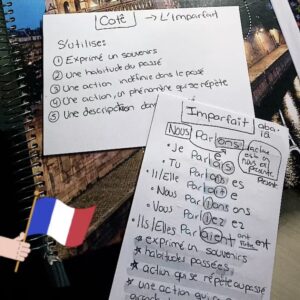 Coté → L'Imparfait
S'utilise:
① Exprimé un souvenirs
② Une habitude du passé
③ Une action indéfinie dans le passé
④ Une action, un phénomère qui se répète
⑤ Une description dan
Imparfait
Nous Parlons
• Je Parlais
• Tu Parlais
• Il/Elle Parlait
• Nous Parlions
• Vous Parliez ez
• Ils/Elles Parlaient ent
* exprimé un souvenir
* habitudes passées
* action qui se répète au passé
* une action qui